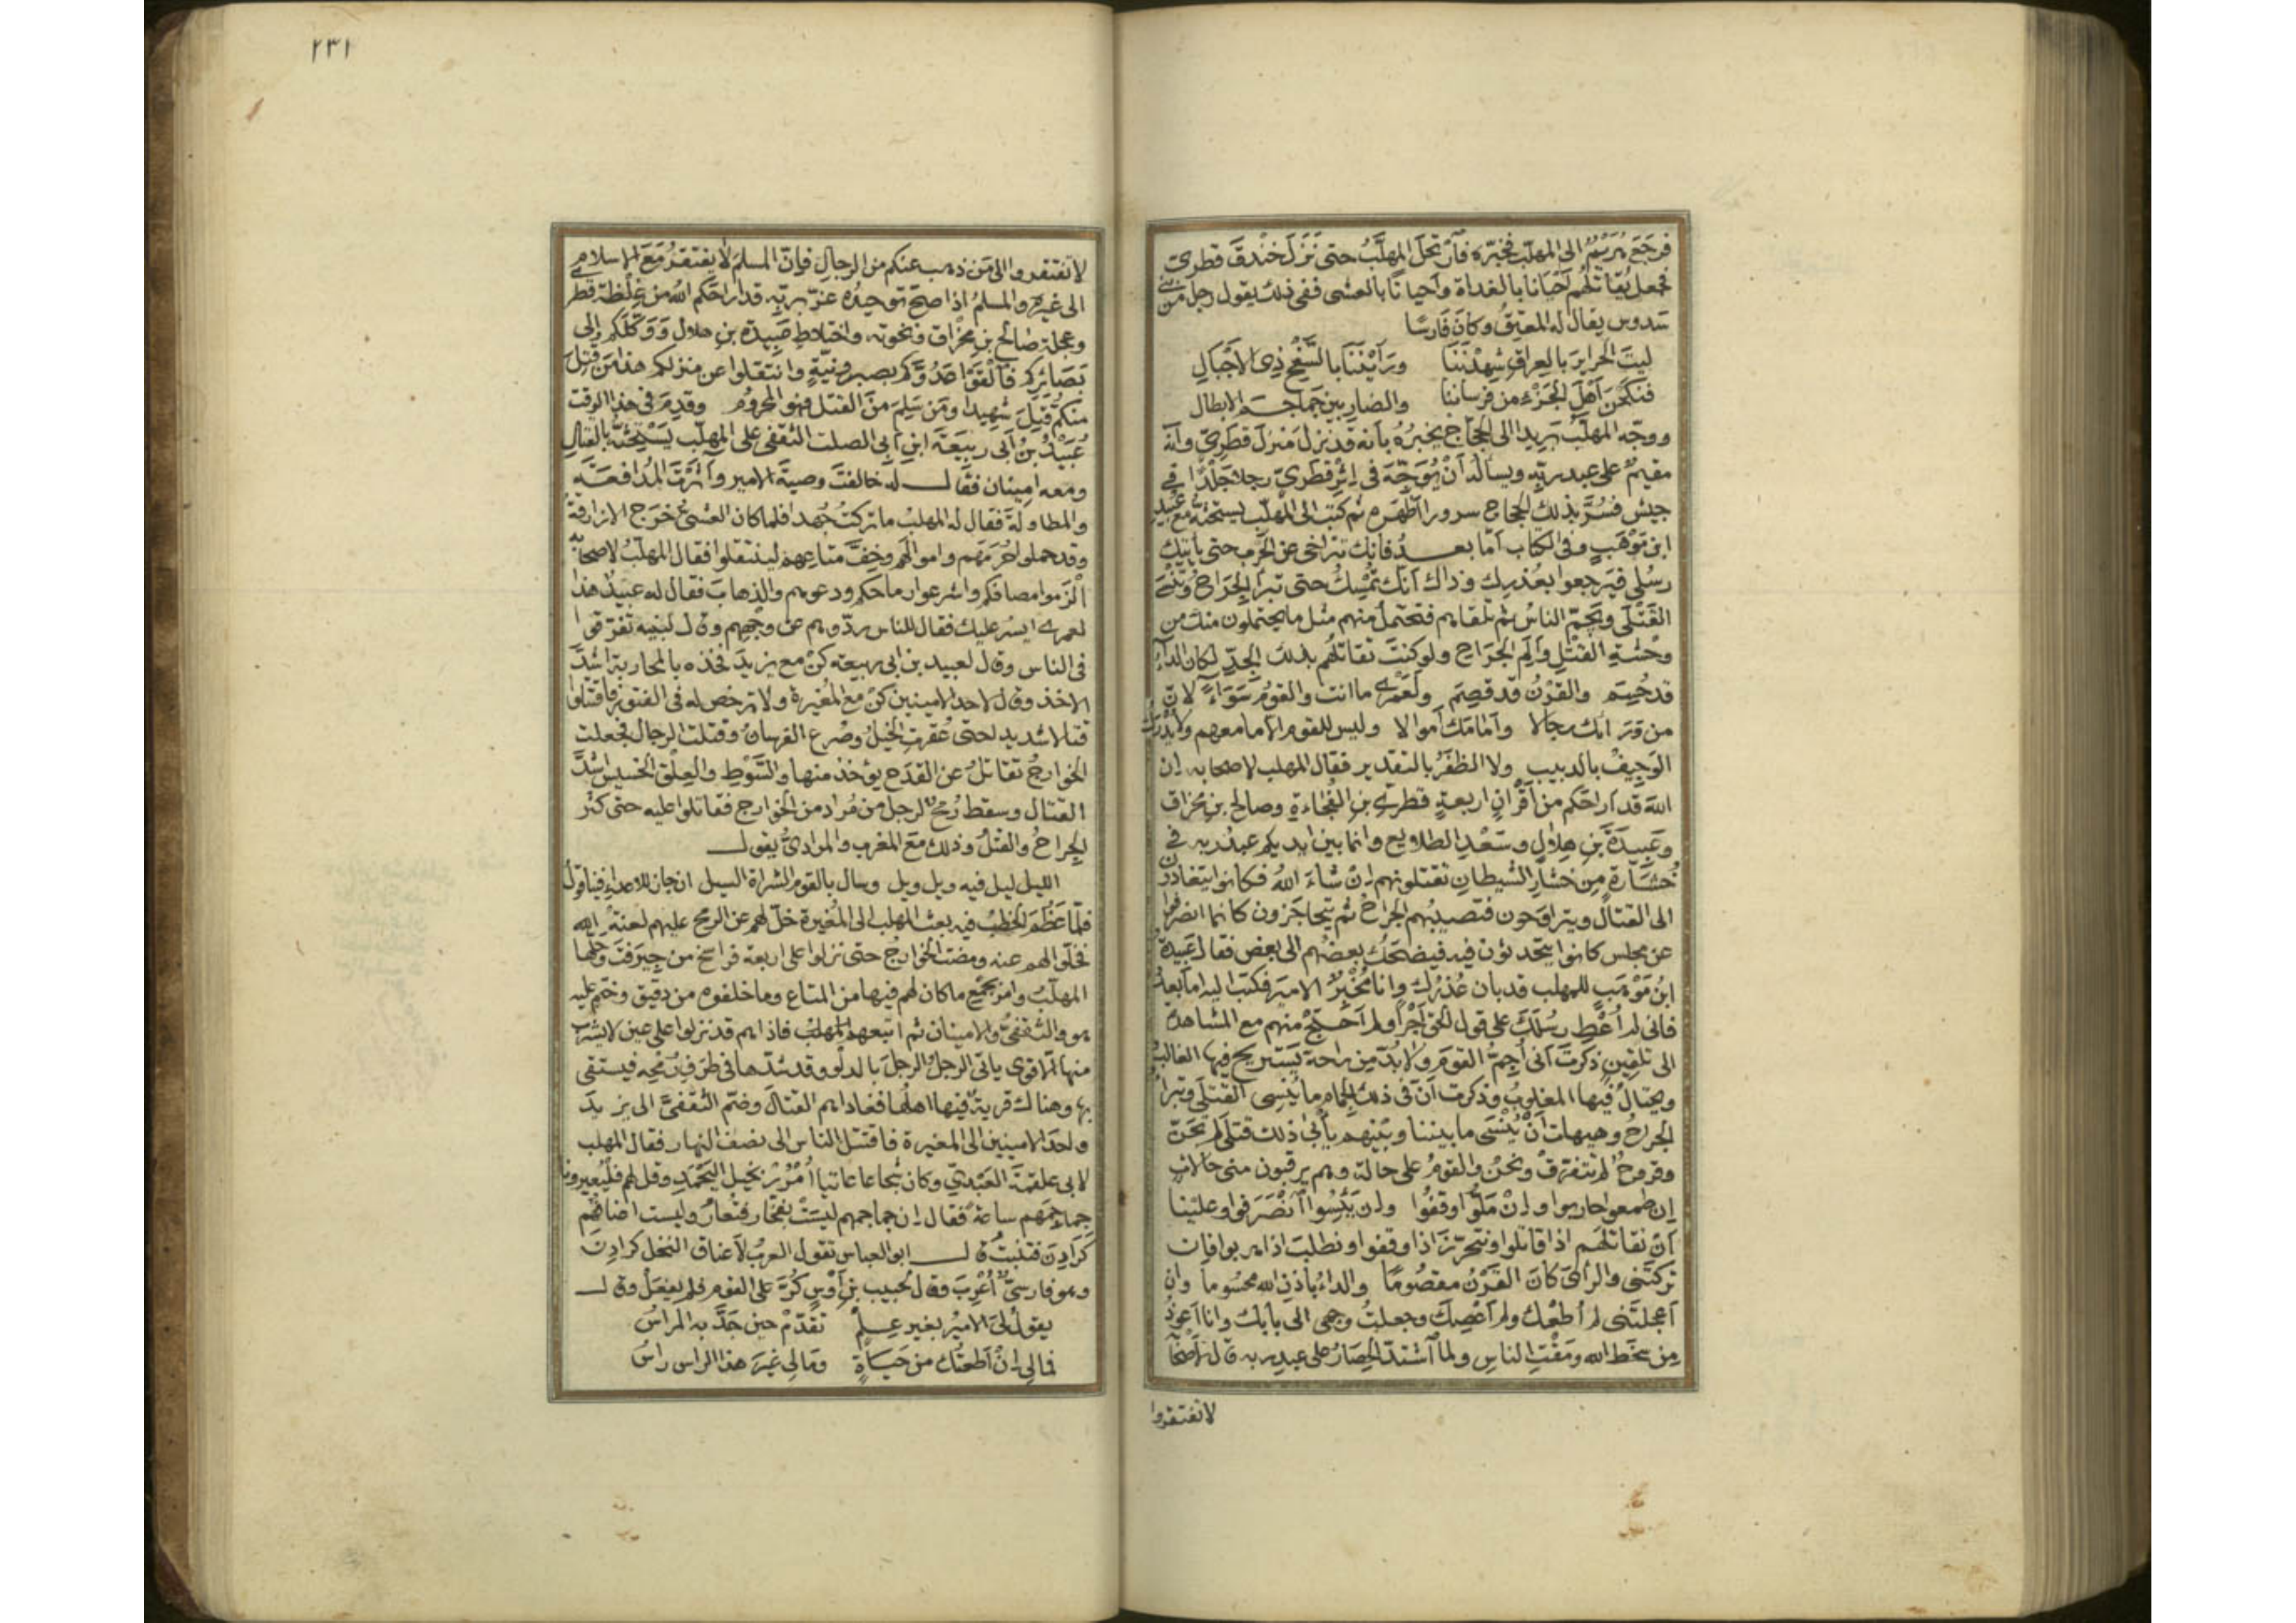 فرجَعَ مُرَّتَهُم الى المهلّب فخبّره فَارتحلَ المهلّبُ حتى نَزَلَ خَنْدقَ قطرىّ
فجعل يُقاتلُهم اَحيانا بالغداة وَاَحيانًا بالعشى ففى ذلك يقول رجل من بنى
سَدوس يقال له المعنِقُ وكانَ فَارسًا
ليتَ الحَرايرَ بالعِراقِ شهِدْنَنا ورَاَيْنَنَا بالسَّفْحِ ذِى الاَجْبَالِ
فنَكَحْنَ اَهْلَ الجَزْءِ من فرساننا والضاربين جَماجِمَ الابطال
ووجّه المهلّبُ يزيد الى الحجّاج يخبرُهُ بأنه قد نزلَ مَنزلَ قطَرىّ وانّه
مقيمٌ على عبد ربّه ويساله اَنْ يُوَجّهَ فى اِثْرِ قَطَرىّ رجلا جَلْدًا فى
جيش فسُرَّ بذلك الحجاج سرورا اَظهَره ثم كتب الى المهلّب يستحثّه مع عُبيد
ابن مَوْهَبٍ وفى الكتاب اَمّا بعــدُ فانك تتراخى عن الحَرْب حتى يأتيَك
رسُلى فيَرجعوا بعُذرِك وذاك اَنك تُمْسِكُ حتى تبرأ الجِرَاحُ وتُنْسَى
القَتْلَى ويَجمّ الناسُ ثم تلقاهم فتحتمل منهم مثل ما يحتملون منك من
وحْشةِ القتْلِ واَلَمِ الجِرَاحِ ولو كنتَ تقاتلُهم بذلك الجِدّ لكان الداءُ
قد حُسِمَ والقَرْنُ قد قُصِمَ ولَعَمْرى ما انت والقومُ سَوَاءً لانّ
من وَرَائك رجالا وَاَمامَك اَموالا وليس للقوم الا ما معهم ولا يُدْرَكُ
الوَجِيفُ بالدبيب ولا الظفَرُ بالتعْذير فقال المهلب لاصحابه ان
اللهَ قد اَرَاحَكم من اَقْرَانٍ اربعةٍ قطرىّ بنِ الفُجاءةِ وصالحِ بنِ مِخْراق
وعَبِيدَةَ بنِ هِلالٍ وسَعْدِ الطلايع وانما بين ايديكم عبدُ ربه فى
خُشَارَةٍ من خُشَارِ الشيطان تقتلونهم اِنْ شاءَ اللهُ فكانوا يتغادَوْن
الى القتال ويتراوَحون فتصيبُهم الجراحُ ثم يتحاجَزون كانما انصرفوا
عن مجلس كانوا يتحدثون فيه فيضحَكُ بعضُهم الى بعض فقال عُبيدُ
ابنُ مَوْهَبٍ للمهلب قد بان عُذرُك وانا مُخْبِرٌ الاميرَ فكتبَ اليه اَما بعدُ
فانى لم اُعْطِ رسُلَكَ على قول الحَقّ اَجْرًا ولم اَحْتَجْ منهم مع المشاهدة
الى تلقينٍ ذكرْتَ اَنى اُجِمُّ القومَ ولا بُدّ من راحةٍ يَسْتَريح فيها الغالبُ
ويحتالُ فيها المغلوبُ وذكرت اَنّ فى ذلك الجَمامِ ما يُنسِى القَتْلَى وتبرأ
الجراحُ وهيهات اَنْ يُنْسَى ما بيننا وبَيْنَهم يأبَى ذلك قتلَى لم تُجَنّ
وقروحٌ لم تتفرّقْ ونحنُ والقومُ على حالة وهم يرقبون منى حالاتٍ
اِن طمعوا حاربوا واِنْ مَلّوا وقَفُوا واِن يَئِسُوا اَنْصَرَفوا وعلَيْنا
اَنْ نقاتلَهم اذا قاتلوا ونتحرّزَ اذا وقفوا ونطلبَ اذا هربوا فان
تركتَنى والرأىَ كانَ القَرْنُ مقصُومًا والداءُ باذن الله محسُوما وان
اَعجلتَنى لم اُطعْك ولم اَعْصِكَ وجعلتُ وجهى الى بابك وانا اَعوذُ
مِن سَخَط الله ومَقْتِ الناسِ ولما اَشتدّ الحِصَارُ على عبد ربه قال لاَصْحَابه
لا تفتقروا
٢٣١
لا تفتقروا الى مَن ذهب عنكم من الرجالِ فاِنّ المسلمَ لا يَفتقرُ مَعَ الاسلام
الى غيرِه والمسلمُ اذا صحّ توحيدُه عَزّ بربّه قد اَراحَكم اللهُ من غِلْظةِ قطرى
وعجلةِ صَالح بنِ مِخْراق ونَخوته واختلاطِ عَبِيدةَ بنِ هلالٍ وَوَكَلَكم اِلى
بَصَائرِكم فَالْقَوْا عَدُوَّكم بصبرٍ ونيّةٍ وانتقلوا عن منزلكم هذا مَن قُتِلَ
منكم قُتِلَ شهيدا ومَن سَلِمَ منَ القتل فهو المحرُوم وقدِمَ فى هذا الوقت
عُبَيْدُ بنُ اَبى رَبيعَةَ ابنِ اَبى الصلت الثقفىّ على المهلّب يَسْتحثّه بالقتال
ومعه امينان فقالــ له خالفتَ وصيةَ الامير وآثرْتَ المُدافَعَةَ
والمطاولةَ فقال له المهلبُ ما تركتُ جُهدا فلما كان العشىّ خرج الازارقةُ
وقد حملوا حُرَمَهم واموالَهم وخِفّ متاعِهم لينتقلوا فقال المهلّبُ لاصحابه
الْزَموا مصافّكم واشرعوا رماحكم ودعوهم والذهابَ فقال له عبيدٌ هذا
لعمرى ايسرُ عليك فقال للناس ردّوهم عن وجههم وقال لبنيه تفرّقوا
فى الناس وقال لعبيد بن ابى ربيعة كنْ مع يزيدَ فخذه بالمحاربة اشدّ
الاخذ وقال لاحد الامينين كنْ مع المُغيرة ولا ترخص له فى الفتور فاقتتلوا
قتالا شديدا حتى عُقِرتِ الخَيْلُ وصُرِعَ الفرسانُ وقتلت الرجال فجعلت
الخوارجُ تقاتلُ عن القدَح يؤخذ منها والسّوْطِ والعِلْقِ الخسيس اشدّ
القتال وسقط رُمْحٌ لرجل من مُراد من الخوارج فقاتلوا عليه حتى كثر
الجراحُ والقتلُ وذلك مَعَ المغرب والمرادىُّ يقولــ
الليل ليل فيه ويل ويل وسال بالقوم الشراة السيل ان جاز للاعداء فينا قول
فلمّا عَظُمَ الخَطْبُ فيه بعث المهلب الى المُغيرة خلّ لهم عن الرمح عليهم لعنةُ الله
فخلّوا لهم عنه ومضت الخوارجُ حتى نزلوا على اربعة فراسخ من جِيرَفْتَ ودخلها
المهلّبُ وامرَ بجمْع ما كان لهم فيها من المتاع وما خلفوه من دقيق وختم عليه
هو والثقفىُّ والامينان ثم اتبعهم المهلبُ فاذا هم قد نزلوا على عين لا يشرب
منها الا قوى يأتى الرجلُ الرجلَ بالدلو وقد شدّها فى طرَفِ رُمحِه فيستقى
بها وهناك قريةٌ فيها اهلُها فغاداهم القتالَ وضمّ الثقفىّ الى يزيدَ
واحدَ الامينين الى المغيرة فاقتتل الناسُ الى نصف النهار فقال المهلب
لابى علقمَةَ العَبْدىّ وكان شُجاعا عاتيا اُمْدُدْنا بخيل اليَحْمَدِ وقل لهم فليُعيرونا
جماجمَهم ساعةً فقال ان جماجمهم ليسَتْ بفَخّار فتُعارُ وليست اعناقُهم
كَرَادِنَ فتنبتُ قالــ ابو العباس تقول العربُ لاَعناق النخل كَرادِنَ
وهو فارسىٌّ اُعْرِبَ وقال لحبيب بنِ اَوْسٍ كُرَّ على القوم فلم يفعَلْ وقالــ
يقولُ لِىَ الاميرُ بغير عِلْمٍ تقدّمْ حين جَدّ به المِراسُ
فمالى اِنْ اَطعتُك من حَيَاةٍ ومَالى غيرَ هذا الراس راسُ